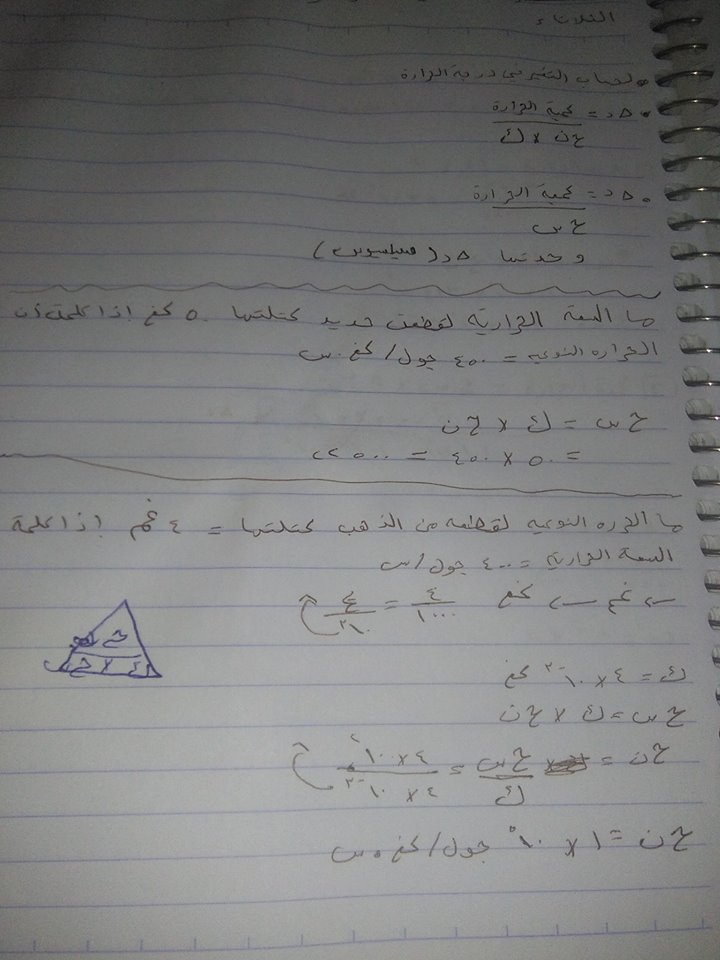 الثلاثاء
• لحساب التغير في درجة الحرارة
• ∆د = كمية الحرارة
حن × ك
• ∆د = كمية الحرارة
ح س
وحدتها ∆د (سيلسيوس)
ما السعة الحرارية لقطعة حديد كتلتها ٥٠ كغ إذا علمت أن
الحراره النوعيه = ٤٥٠ جول/كغ.س
ح س = ك × حن
= ٥٠ × ٤٥٠ =
ما الحره النوعيه لقطعه من الذهب كتلتها = ٤ غم إذا علمة
السعة الحرارية = ٤٠٠ جول/س
غم ← كغ ٤/١٠٠٠ = ٤/١٠^٣
ح س
ك × ح س
ك = ٤ × ١٠^-٣ كغ
ح س = ك × حن
حن = ح س/ك = ٤ × ١٠^٢/٤ × ١٠^-٣
حن = ١ × ١٠^٥ جول/كغ.س